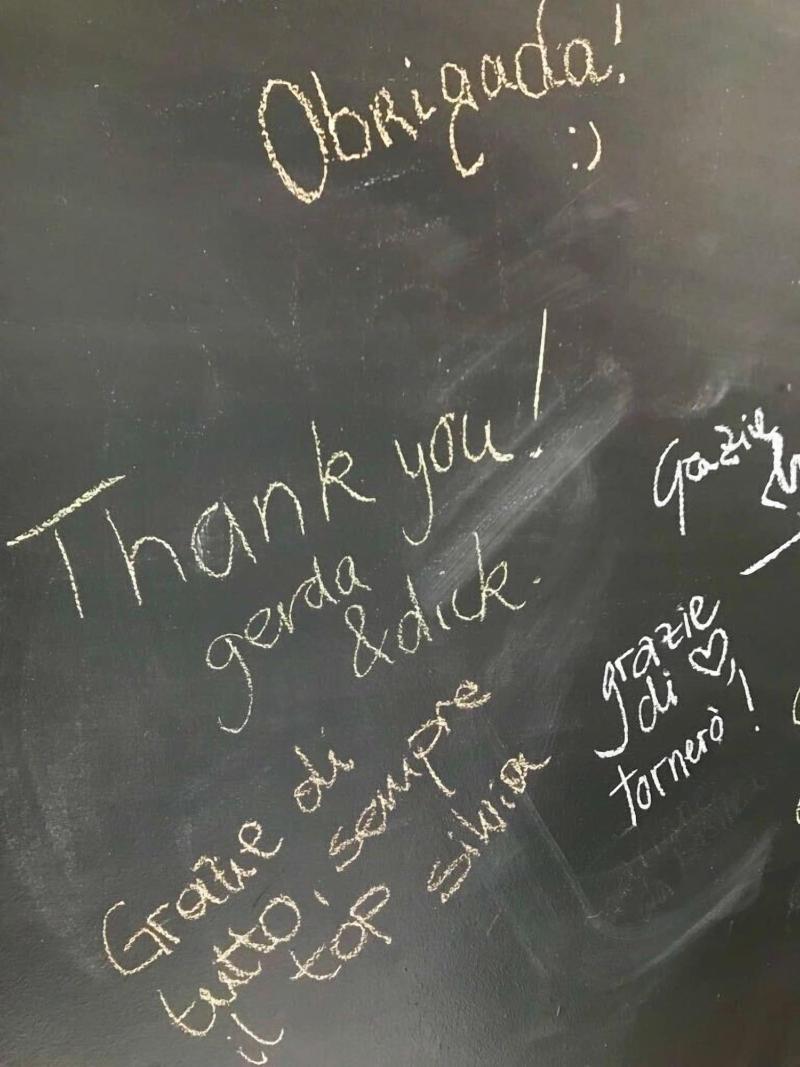 Obrigada!
:)
Thank you!
gerda
& dick.
Grazie di
tutto, sempre
il top silvia
Grazie
grazie
di ♡,
tornerò!